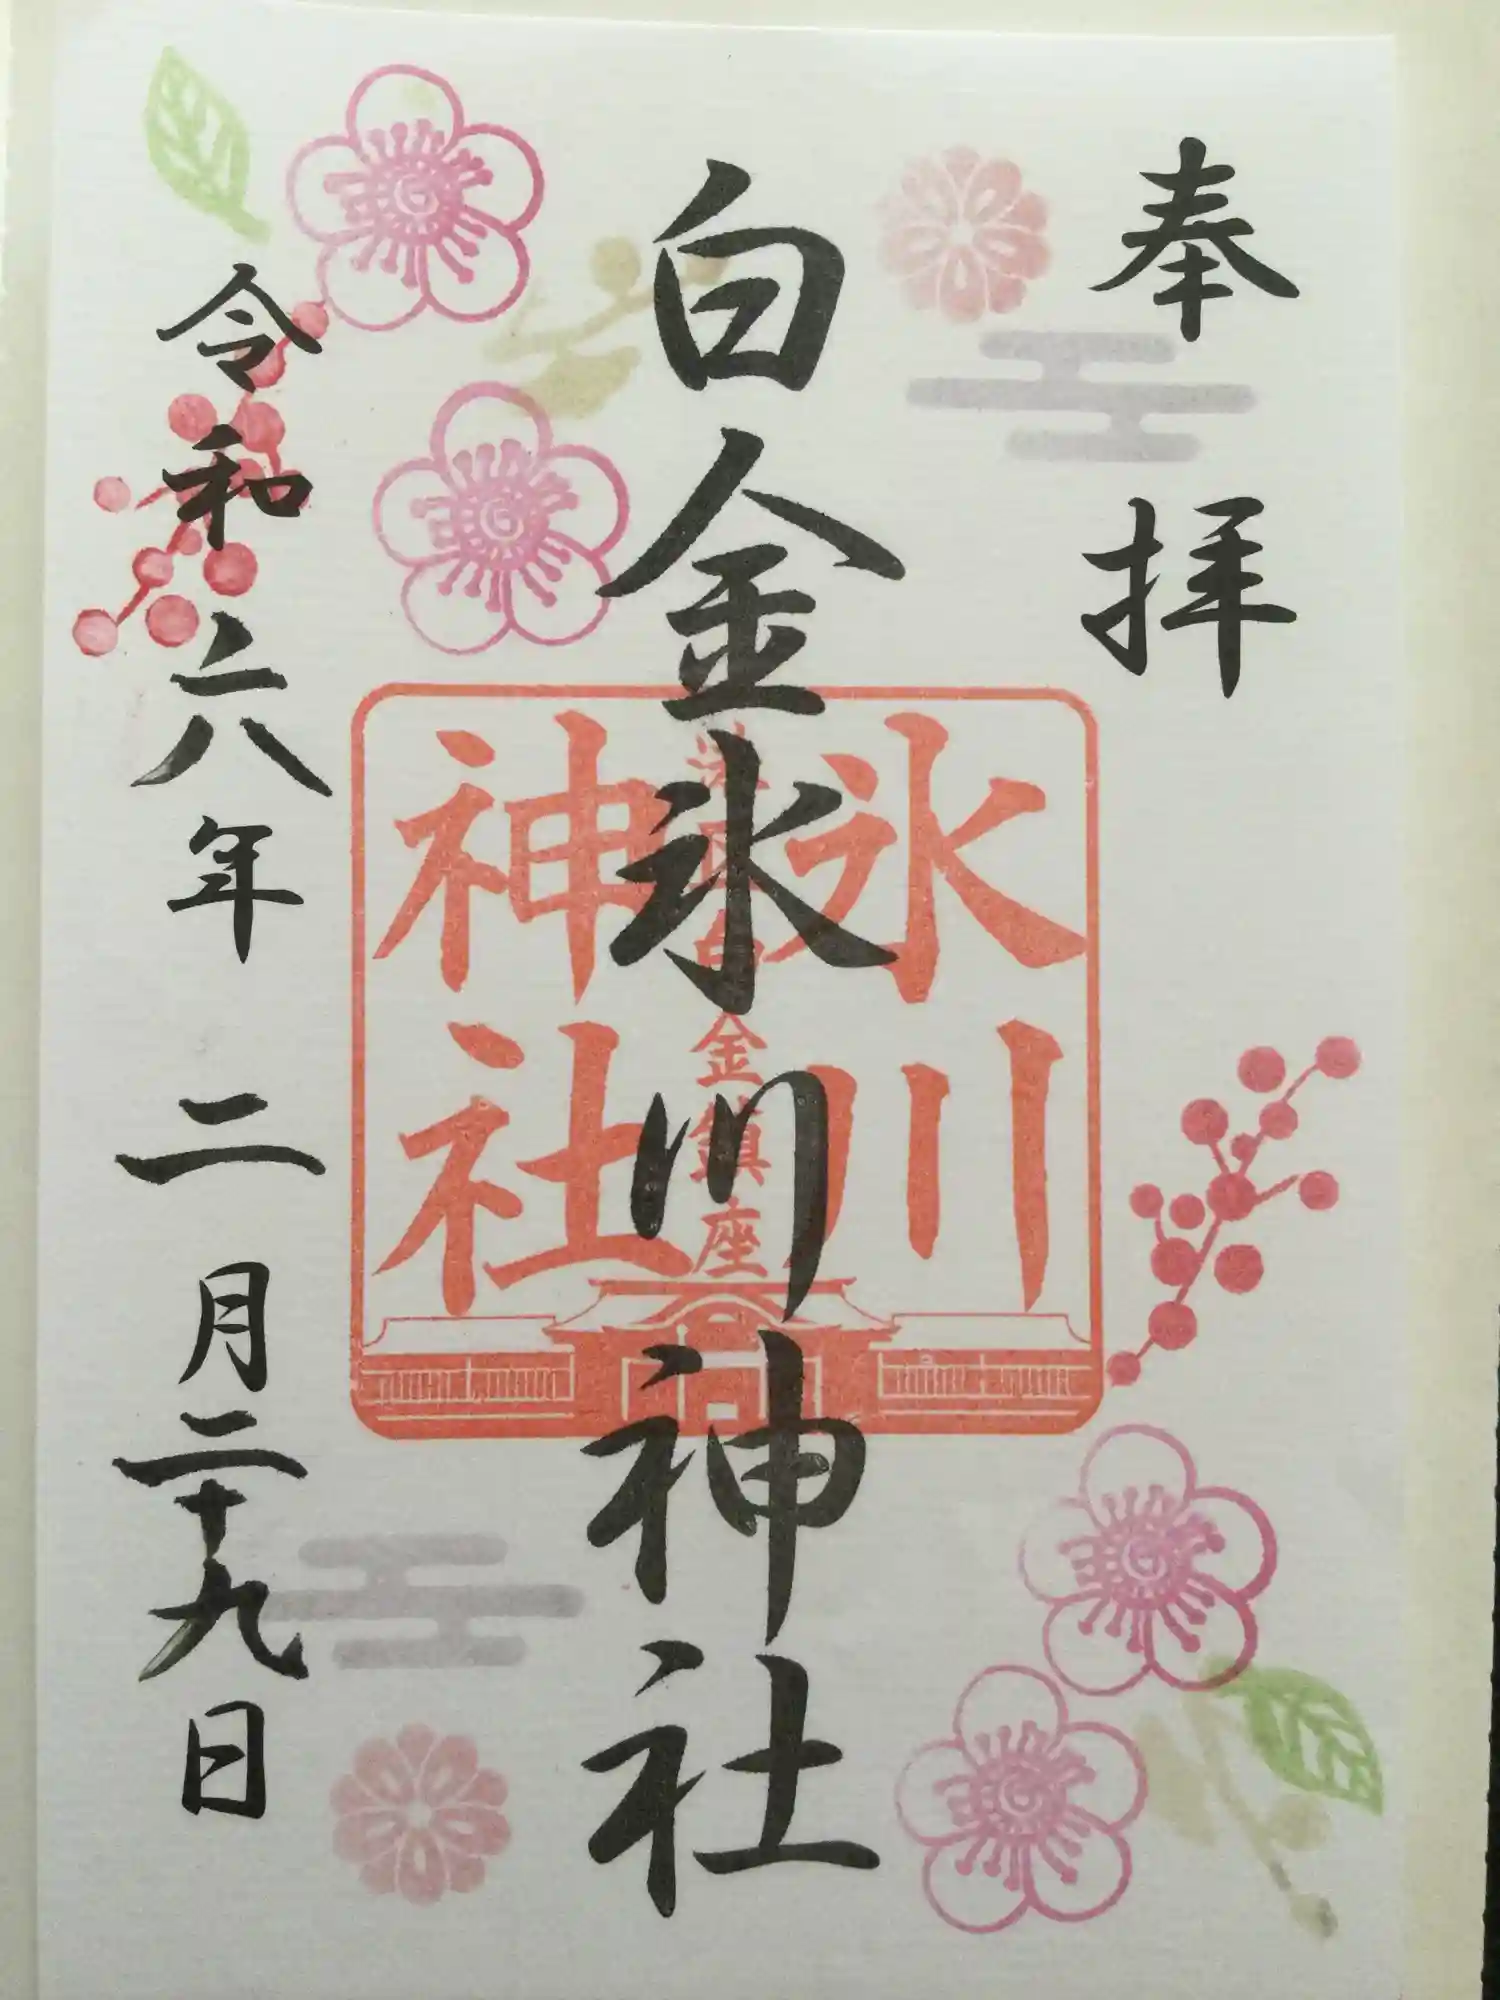 奉拝
白金氷川神社
氷川
白金鎮座
神社
令和六年二月二十九日